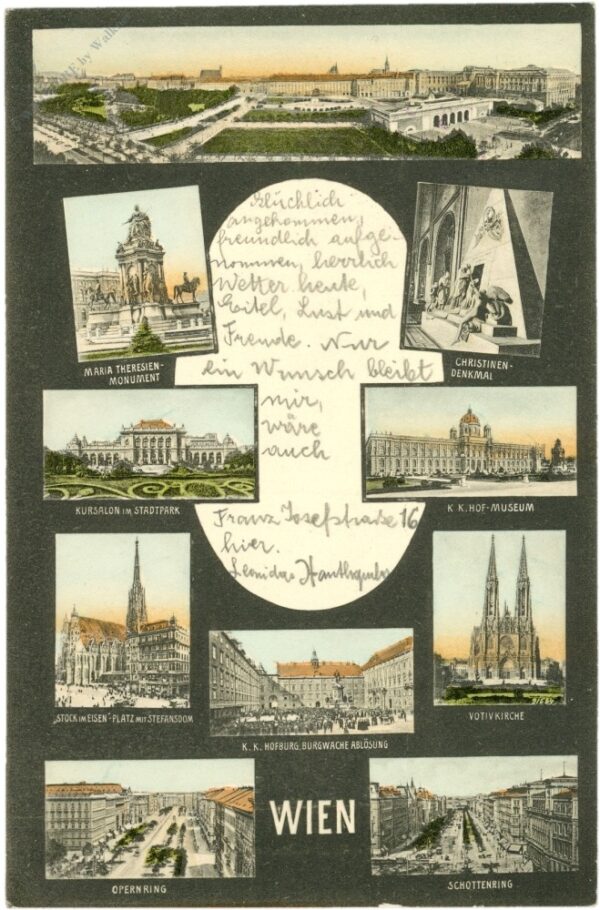 Glücklich
angekommen,
freundlich aufge-
nommen, herrlich
Wetter heute,
Eitel, Lust und
Freude. Nur
ein Wunsch bleibt
mir,
wäre
auch
Franz Josefstraße 16
hier.
Leonidas
MARIA THERESIEN-
MONUMENT
CHRISTINEN-
DENKMAL
KURSALON IM STADTPARK
K. K. HOF-MUSEUM
„STOCK IM EISEN"-PLATZ MIT STEFANSDOM
K. K. HOFBURG. BURGWACHE ABLÖSUNG
VOTIVKIRCHE
WIEN
OPERNRING
SCHOTTENRING